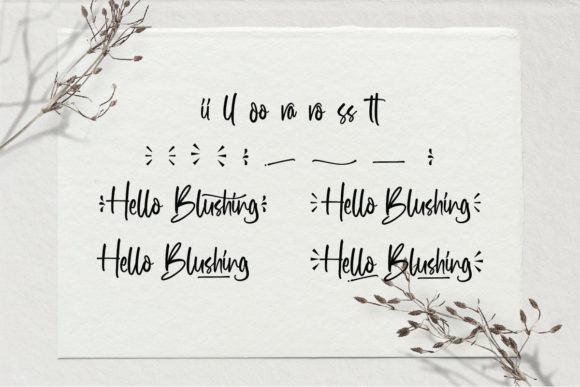 ii ll oo ra ro ss tt
Hello Blushing Hello Blushing
Hello Blushing Hello Blushing